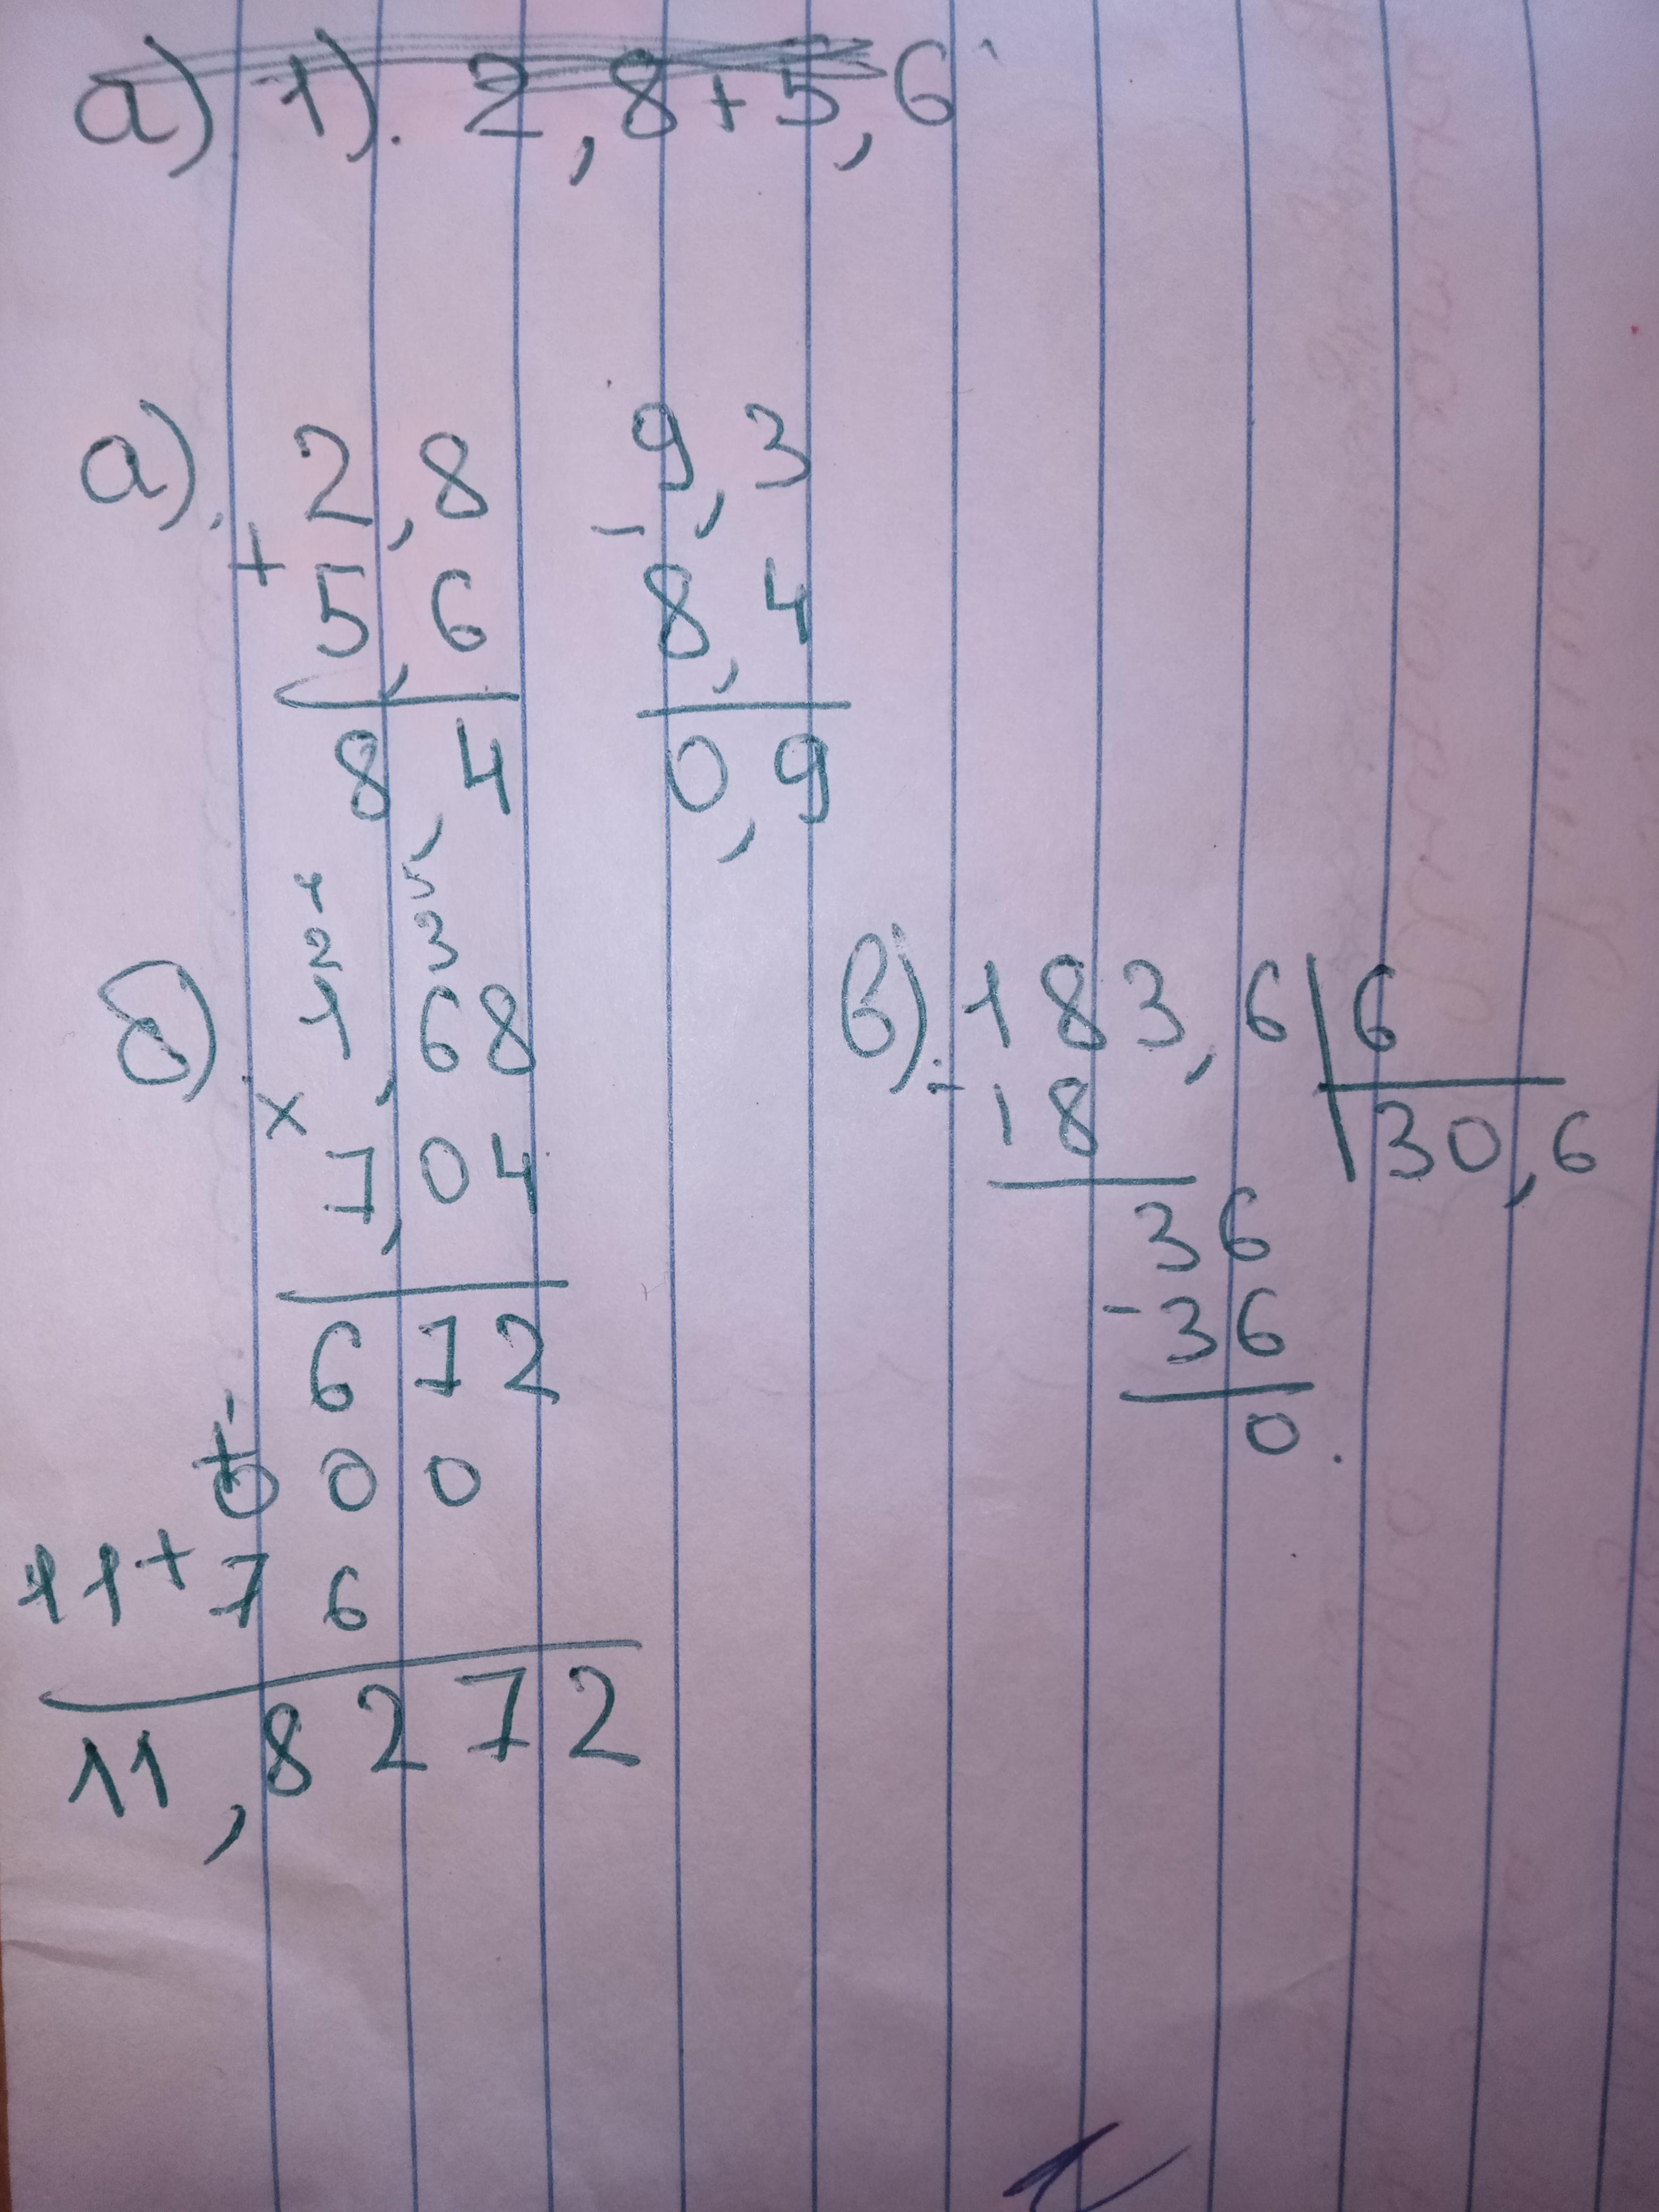 а) 1). 2,8+5,6
а). 2,8
+
5,6
8,4
9,3
-
8,4
0,9
4 5
2 3
б). 1,68
×
7,04
672
+
000
11+76
11,8272
в). 183,6 | 6
-18 30,6
36
-36
0.